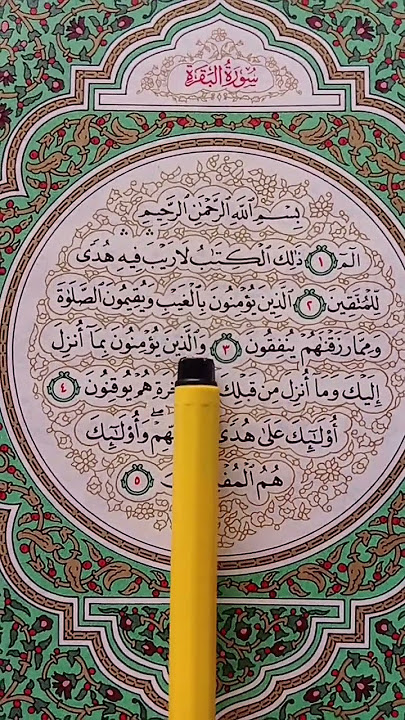 سُورَةُ الْبَقَرَةِ
بِسْمِ اللَّهِ الرَّحْمَٰنِ الرَّحِيمِ
الٓمٓ ١ ذَٰلِكَ الْكِتَٰبُ لَا رَيْبَ فِيهِ هُدًى
لِّلْمُتَّقِينَ ٢ الَّذِينَ يُؤْمِنُونَ بِالْغَيْبِ وَيُقِيمُونَ الصَّلَوٰةَ
وَمِمَّا رَزَقْنَٰهُمْ يُنفِقُونَ ٣ وَالَّذِينَ يُؤْمِنُونَ بِمَآ أُنزِلَ
إِلَيْكَ وَمَآ أُنزِلَ مِن قَبْلِكَ هُمْ يُوقِنُونَ ٤
أُو۟لَٰٓئِكَ عَلَىٰ هُدًى وَأُو۟لَٰٓئِكَ
هُمُ ٥